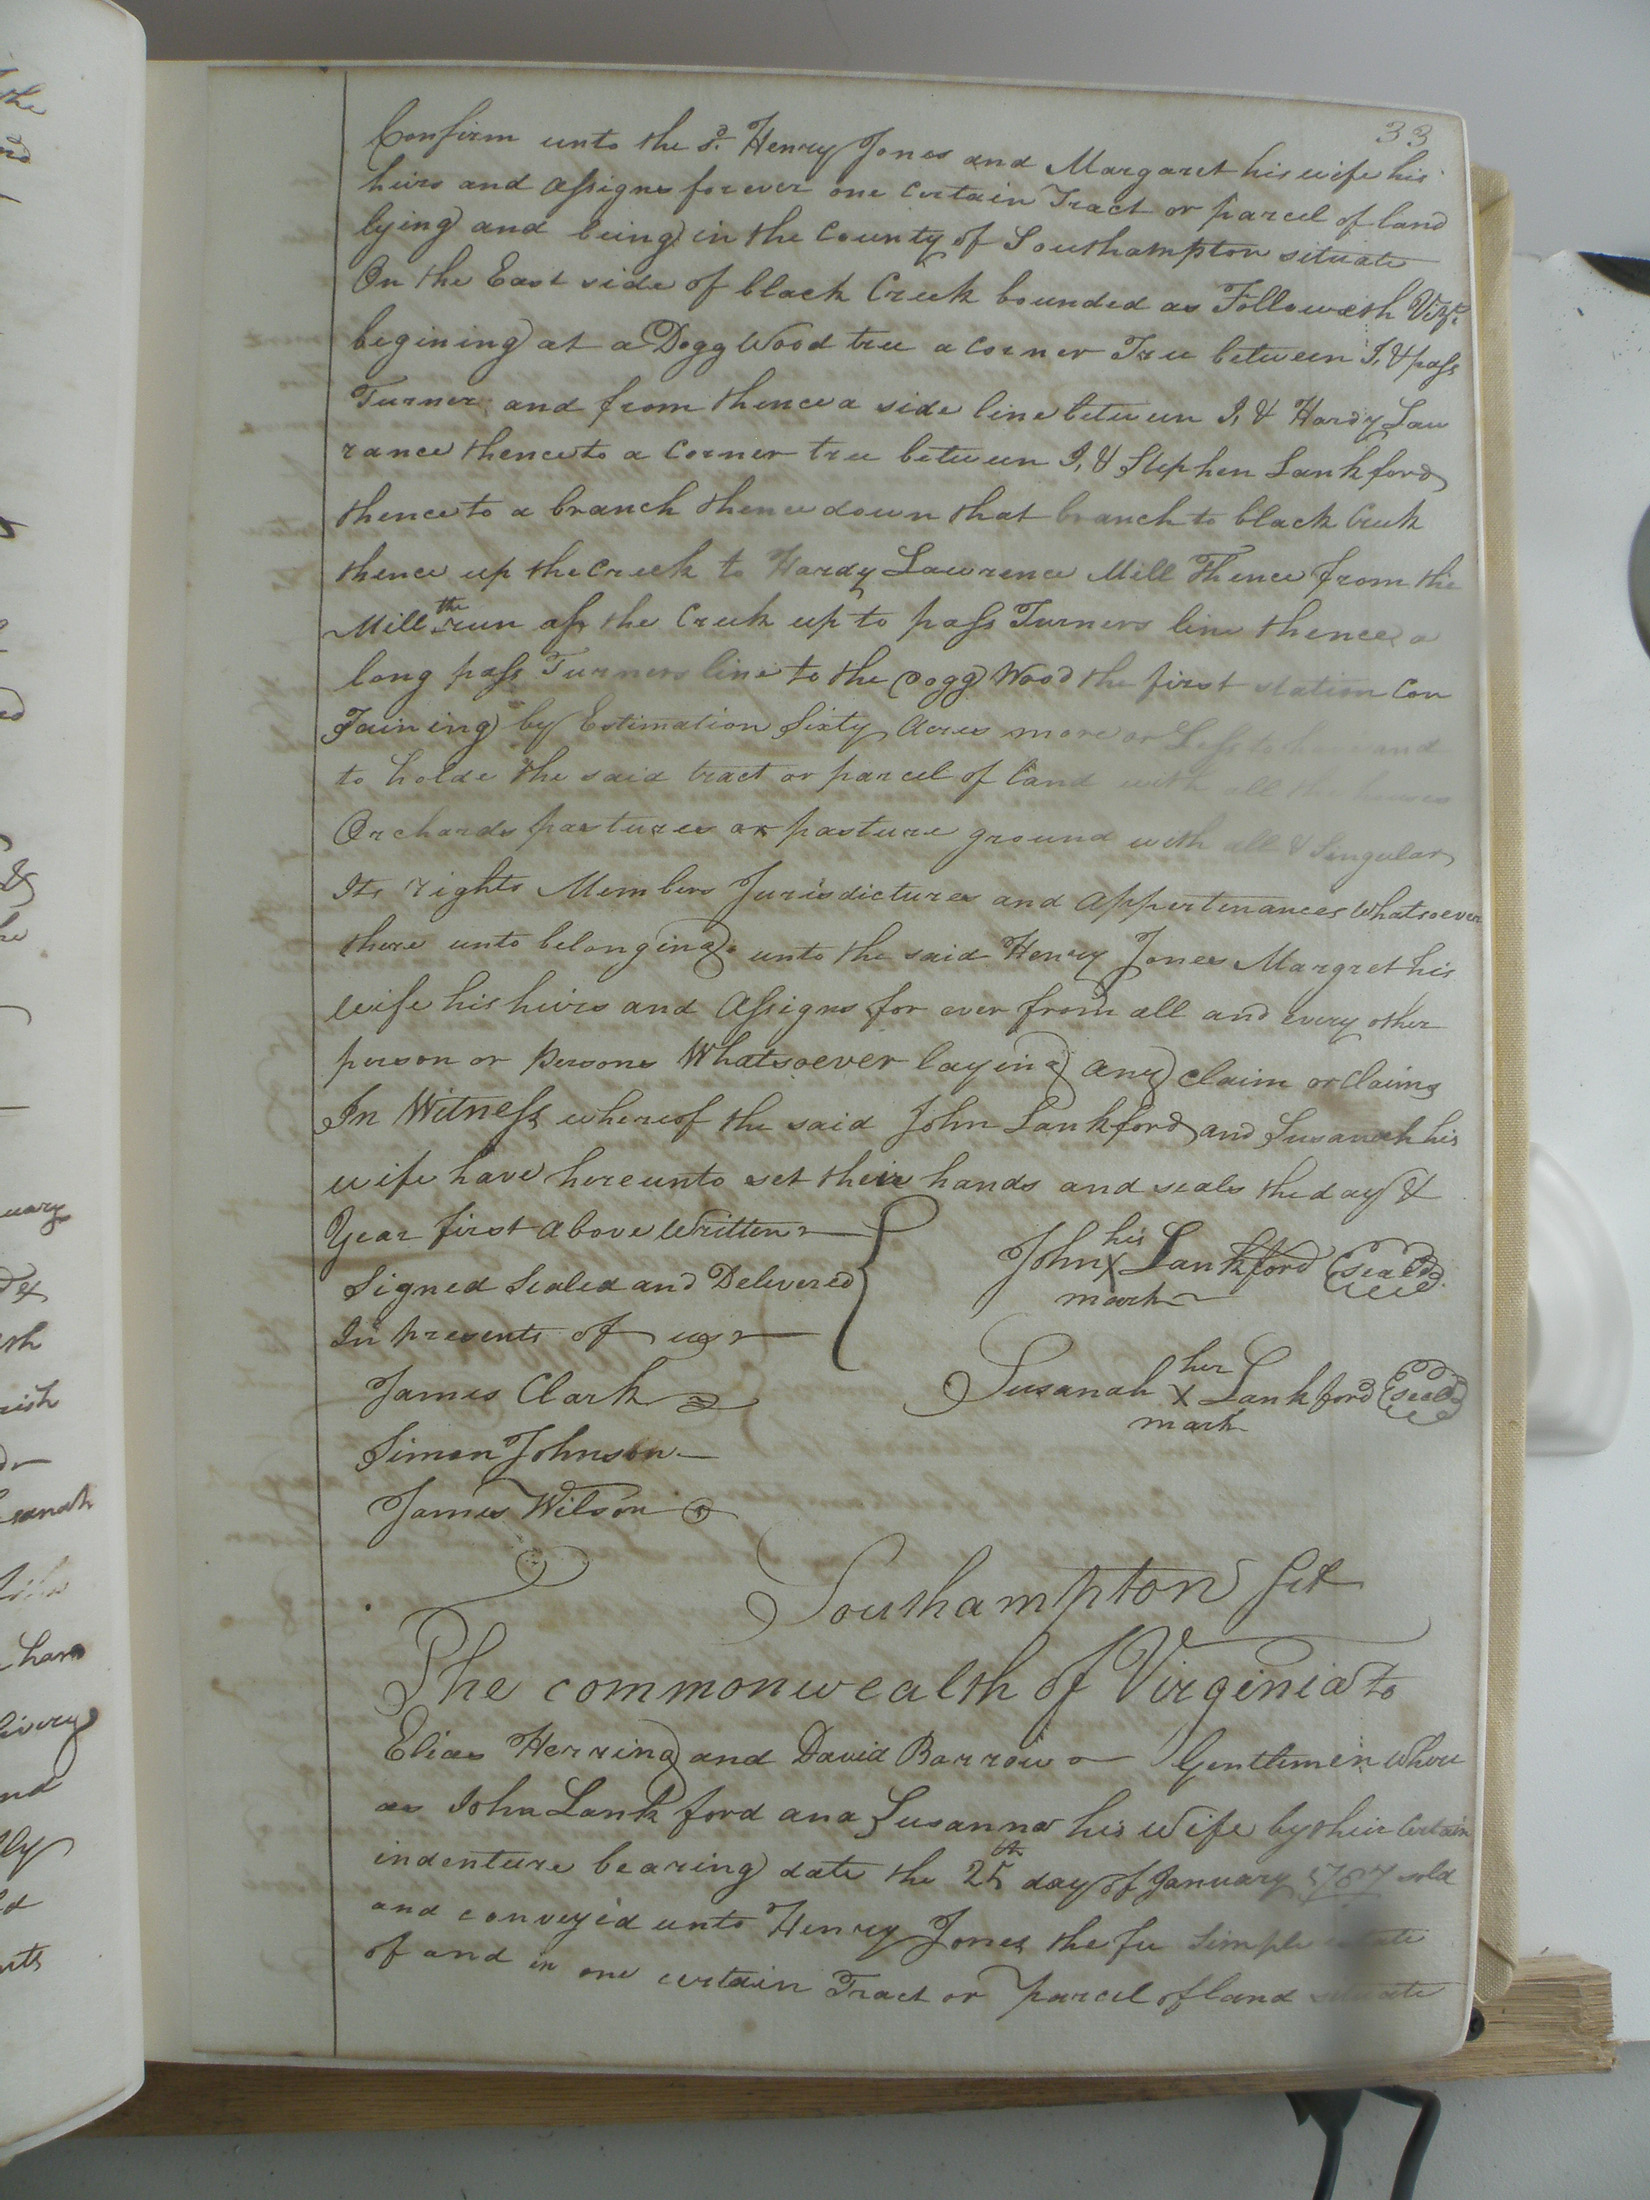 33
Confirm unto the sd. Henry Jones and Margaret his wife his
heirs and assigns forever one certain Tract or parcel of land
lying and being in the County of Southampton situate
On the East side of black Creek bounded as Followeth Vizt.
begining at a Dogg Wood tree a corner Tree between I, & pass
Turner and from thence a side line between I, & Hardy Law
rance thence to a Corner tree between I, & Stephen Lankford
thence to a branch thence down that branch to black Creek
thence up the Creek to Hardy Lawrence Mill Thence from the
Mill the run ass the Creek up to pass Turners line thence a
long pass Turners line to the Dogg Wood the first station Con
Taining by Estimation Sixty Acres more or Less to have and
to holde the said tract or parcel of land with all the houses
Orchards pastures or pasture ground with all & Singular
Its rights Members Jurisdictures and appertenances whatsoever
there unto belonging unto the said Henry Jones Margret his
wife his heirs and Assigns for ever from all and every other
person or persons Whatsoever laying any claim or claims
In Witness whereof the said John Lankford and Susanah his
wife have hereunto set their hands and seals the day &
Year first above written
Signed Sealed and Delivered
In presents of us
John his X mark Lankford Seal
Susanah her X mark Lankford Seal
James Clark
Simon Johnson
James Wilson
Southampton Sct
The commonwealth of Virginia to
Elias Herring and David Barrow Gentlemen where
as John Lankford and Susanna his Wife by their Certain
indenture bearing date the 25th day of January 1787 sold
and convey'd unto Henry Jones the fee Simple estate
of and in one certain Tract or parcel of land situate